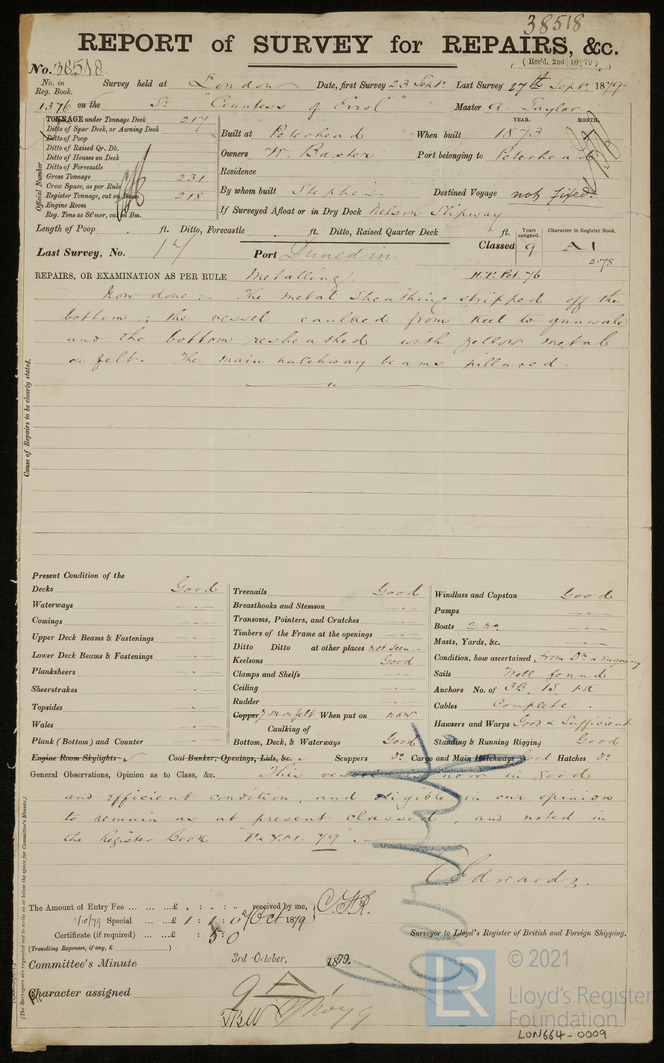 38518
REPORT of SURVEY for REPAIRS, &c.
(Rec'd. 2nd 10 79)
No. 38518
No. in Reg. Book. Survey held at London Date, first Survey 23 Sept. Last Survey 27th Sept. 1879
1376 on the Sr "Countess of Errol" Master A. Taylor
TONNAGE under Tonnage Deck 217
Ditto of Spar Deck, or Awning Deck
Ditto of Poop
Ditto of Raised Qr. Dk.
Ditto of Houses on Deck
Ditto of Forecastle
Gross Tonnage 231
Crew Space, as per Rule
Register Tonnage, cut on Beam 218
Engine Room
Reg. Tons as St'mer, cut on Bm.
Official Number
YEAR. MONTH.
Built at Peterhead When built 1873
Owners W. Baxter Port belonging to Peterhead
Residence
By whom built Stephen Destined Voyage not fixed.
If Surveyed Afloat or in Dry Dock Nelson Slipway
Length of Poop ft. Ditto, Forecastle ft. Ditto, Raised Quarter Deck ft.
Years assigned. Character in Register Book.
Last Survey, No. 14 Port Dunedin Classed 9 A1
2.78
REPAIRS, OR EXAMINATION AS PER RULE Metalling
Now done: The metal sheathing stripped off the
bottom; the vessel caulked from keel to gunwale
and the bottom resheathed with yellow metal
on felt. The main hatchway beams pillared.
Cause of Repairs to be clearly stated.
Present Condition of the
Decks Good
Waterways
Comings
Upper Deck Beams & Fastenings
Lower Deck Beams & Fastenings
Planksheers
Sheerstrakes
Topsides
Wales
Plank (Bottom) and Counter
Treenails Good
Breasthooks and Stemson
Transoms, Pointers, and Crutches
Timbers of the Frame at the openings
Ditto Ditto at other places not seen
Keelsons Good
Clamps and Shelfs
Ceiling
Rudder
Copper Y.M. on felt When put on now
Caulking of
Bottom, Deck, & Waterways Good
Windlass and Capstan Good
Pumps
Boats 2
Masts, Yards, &c.
Condition, how ascertained From Dk & Enquiry
Sails Well found
Anchors No. of 3B. 1S. 1K
Cables Complete.
Hawsers and Warps Good & Sufficient
Standing & Running Rigging Good
Engine Room Skylights Coal Bunker, Openings, Lids, &c. Scuppers Do. Cargo and Main Hatchways Good Hatches Do
General Observations, Opinion as to Class, &c. This vessel is now in good
and efficient condition, and eligible in our opinion
to remain as at present classed and noted in
the Register Book "F & Y.M. 79".
C Edwards.
The Amount of Entry Fee ... ... ... £ : : received by me,
2/10/79 Special ... ... £ 1 : 1 : 0 Oct 1879
Certificate (if required) ... : 5 0
(Travelling Expenses, if any, £ )
Surveyor to Lloyd's Register of British and Foreign Shipping.
Committee's Minute 3rd October, 1879.
Character assigned 9 A 1
© 2021
LR
Lloyd's Register
Foundation
LON664-0009